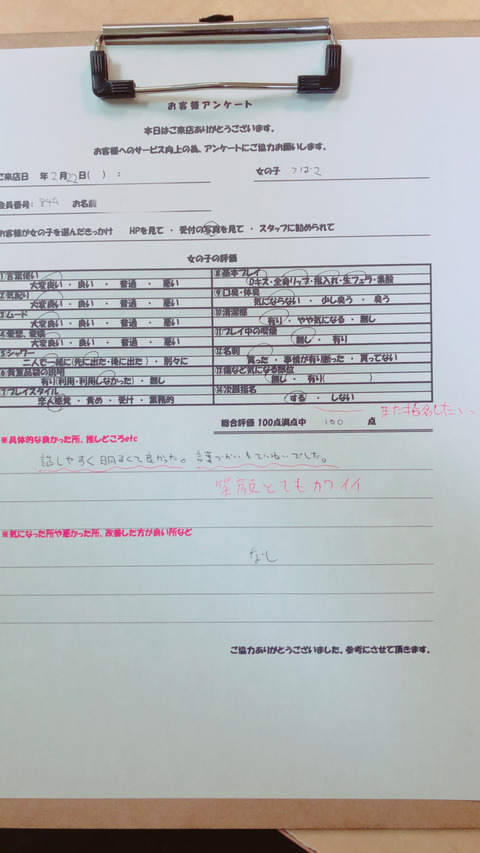 お客様アンケート
本日はご来店ありがとうございます。
お客様へのサービス向上の為、アンケートにご協力お願いします。
ご来店日 年2月22日( ) : 女の子 つばさ
会員番号: 849 お名前
お客様が女の子を選んだきっかけ HPを見て ・ 受付の写真を見て ・ スタッフに勧められて
女の子の評価
1 言葉使い
大変良い ・ 良い ・ 普通 ・ 悪い
2 気配り
大変良い ・ 良い ・ 普通 ・ 悪い
3 ムード
大変良い ・ 良い ・ 普通 ・ 悪い
4 愛想、愛嬌
大変良い ・ 良い ・ 普通 ・ 悪い
5 シャワー
二人で一緒に(先に出た・後に出た) ・ 別々に
6 貴重品袋の説明
有り(利用・利用しなかった) ・ 無し
7 プレイスタイル
恋人感覚 ・ 責め ・ 受け ・ 業務的
8 基本プレイ
Dキス・全身リップ・指入れ・生フェラ・素股
9 口臭・体臭
気にならない ・ 少し臭う ・ 臭う
10 清潔感
有り ・ やや気になる ・ 無し
11 プレイ中の喫煙
無し ・ 有り
12 名刺
貰った ・ 事情が有り断った ・ 貰ってない
13 傷など気になる部位
無し ・ 有り( )
14 次回指名
する ・ しない
また指名したい
総合評価 100点満点中 100 点
※具体的な良かった所、推しどころetc
話しやすく明るくて良かった。言葉づかいもていねいでした。
笑顔とてもカワイイ
※気になった所や悪かった所、改善した方が良い所など
なし
ご協力ありがとうございました。参考にさせて頂きます。